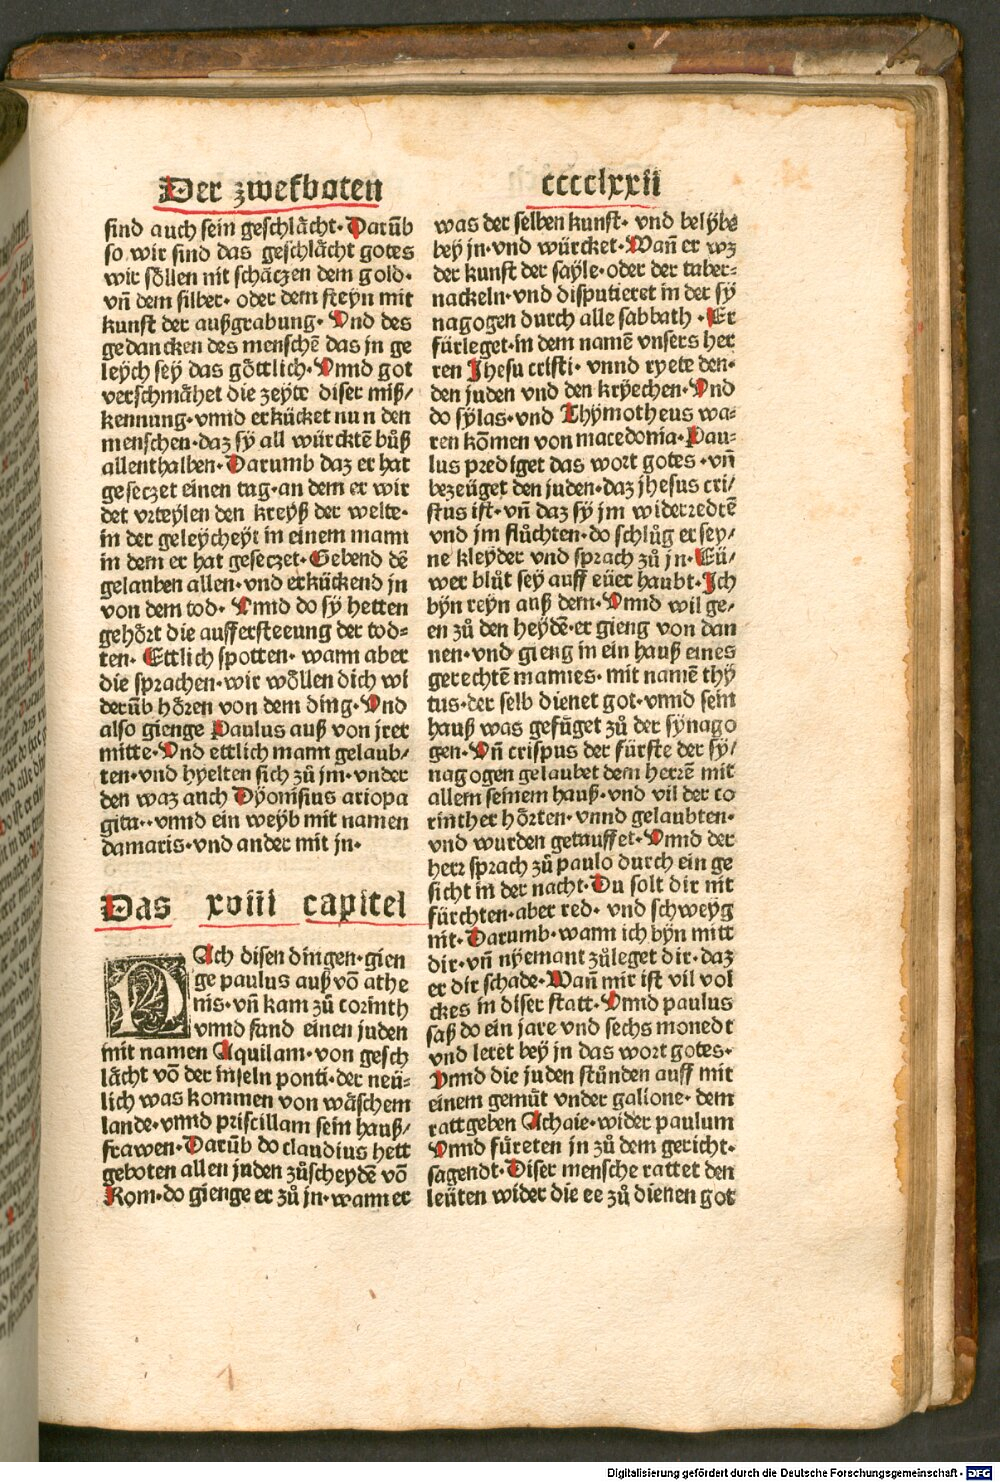 Der zwelfboten
cccclxxii
sind auch sein geschlächt· Darūb
so wir sind das geschlächt gotes
wir söllen nit schäczen dem gold·
vn̄ dem silber· oder dem steyn mit
kunst der außgrabung· Vnd des
gedancken des menschē das in ge
leych sey das göttlich· Vnnd got
verschmähet die zeyte diser miß/
kennung· vnnd erkücket nun den
menschen· daz sy all würcktē bůß
allenthalben· Darumb daz er hat
geseczet einen tag· an dem er wir
det vrteylen den kreyß der welte·
in der geleycheyt in einem mann
in dem er hat geseczet· Gebend dē
gelauben allen· vnd erkückend jn
von dem tod· Vnnd do sy hetten
gehört die auffersteeung der tod=
ten· Ettlich spotten· wann aber
die sprachen· wir wöllen dich wi
derūb hören von dem ding· Vnd
also gienge Paulus auß von jrer
mitte· Vnd ettlich mann gelaub/
ten· vnd hyelten sich zů jm· vnder
den waz auch Dyonisius ariopa
gita·· vnnd ein weyb mit namen
damaris· vnd ander mit jn·
Das xviii capitel
NAch disen dingen· gien
ge paulus auß vō athe
nis· vn̄ kam zů corinth
vnnd fand einen juden
mit namen Aquilam· von gesch
lächt vō der inseln ponti· der neü=
lich was kommen von wäschem
lande· vnnd priscillam sein hauß/
frawen· Darūb do claudius hett
geboten allen juden zůscheydē vō
Rom· do gienge er zů jn· wann er
was der selben kunst· vnd belybe
bey jn· vnd würcket· Wan̄ er wz
der kunst der sayle· oder der taber=
nackeln· vnd disputieret in der sy
nagogen durch alle sabbath · Er
fürleget· in dem namē vnsers her
ren Jhesu cristi· vnnd ryete den·
den juden vnd den kryechen· Vnd
do sylas· vnd Thymotheus wa=
ren kōmen von macedonia· Pau=
lus prediget das wort gotes · vn̄
bezeüget den juden· daz jhesus cri/
stus ist· vn̄ daz sy jm widerredtē
vnd jm flůchten· do schlůg er sey/
ne kleyder vnd sprach zů jn· Eü/
wer blůt sey auff eüer haubt· Ich
byn reyn auß dem· Vnnd wil ge/
en zů den heydē· er gieng von dan
nen· vnd gieng in ein hauß eines
gerechtē mannes· mit namē thy
tus· der selb dienet got· vnnd sein
hauß was gefůget zů der synago
gen· Vn̄ crispus der fürste der sy/
nagogen gelaubet dem herrē mit
allem seinem hauß· vnd vil der co
rinther hörten· vnnd gelaubten·
vnd wurden getauffet· Vnnd der
herr sprach zů paulo durch ein ge
sicht in der nacht· Du solt dir nit
fürchten· aber red· vnd schweyg
nit· Darumb· wann ich byn mitt
dir· vn̄ nyemant zůleget dir· daz
er dir schade· Wan̄ mir ist vil vol
ckes in diser statt· Vnnd paulus
saß do ein jare vnd sechs monedt
vnd leret bey jn das wort gotes·
Vnnd die juden stůnden auff mit
einem gemůt vnder galione· dem
rattgeben Achaie· wider paulum
Vnnd fůreten in zů dem gericht·
sagendt· Diser mensche rattet den
leüten wider die ee zů dienen got
Digitalisierung gefördert durch die Deutsche Forschungsgemeinschaft - DFG